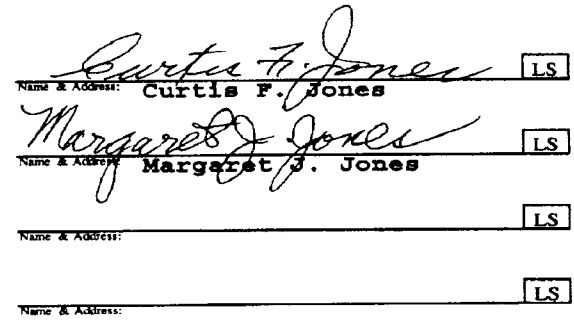 Curtis F. Jones LS
Name & Address: Curtis F. Jones
Margaret J. Jones LS
Name & Address: Margaret J. Jones
LS
Name & Address:
LS
Name & Address: